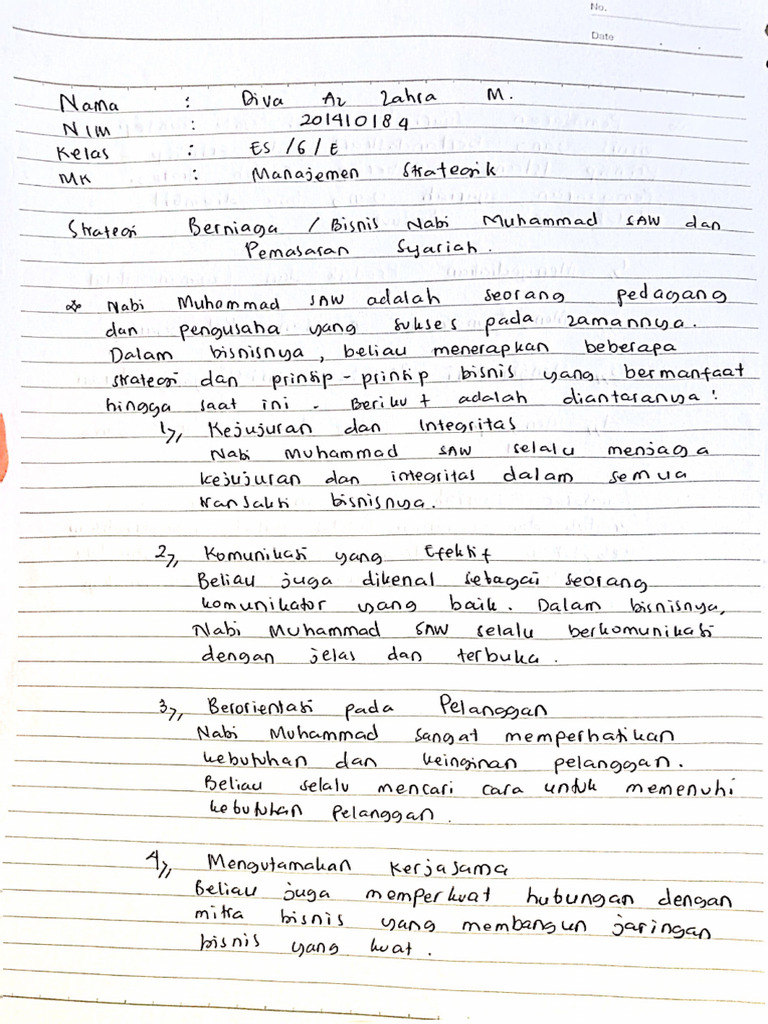 No.
Date
Nama : Diva Az Zahra M.
NIM : 201410184
Kelas : ES / 6 / E
MK : Manajemen Strategik
Strategi Berniaga / Bisnis Nabi Muhammad SAW dan
Pemasaran Syariah.
Nabi Muhammad SAW adalah seorang pedagang
dan pengusaha yang sukses pada zamannya.
Dalam bisnisnya, beliau menerapkan beberapa
strategi dan prinsip-prinsip bisnis yang bermanfaat
hingga saat ini. Berikut adalah diantaranya :
1>, Kejujuran dan Integritas
Nabi Muhammad SAW selalu menjaga
kejujuran dan integritas dalam semua
transaksi bisnisnya.
2>, Komunikasi yang Efektif
Beliau juga dikenal sebagai seorang
komunikator yang baik. Dalam bisnisnya,
Nabi Muhammad SAW selalu berkomunikasi
dengan jelas dan terbuka.
3>, Berorientasi pada Pelanggan
Nabi Muhammad sangat memperhatikan
kebutuhan dan keinginan pelanggan.
Beliau selalu mencari cara untuk memenuhi
kebutuhan pelanggan.
4>, Mengutamakan Kerjasama
Beliau juga memperkuat hubungan dengan
mitra bisnis yang membangun jaringan
bisnis yang kuat.